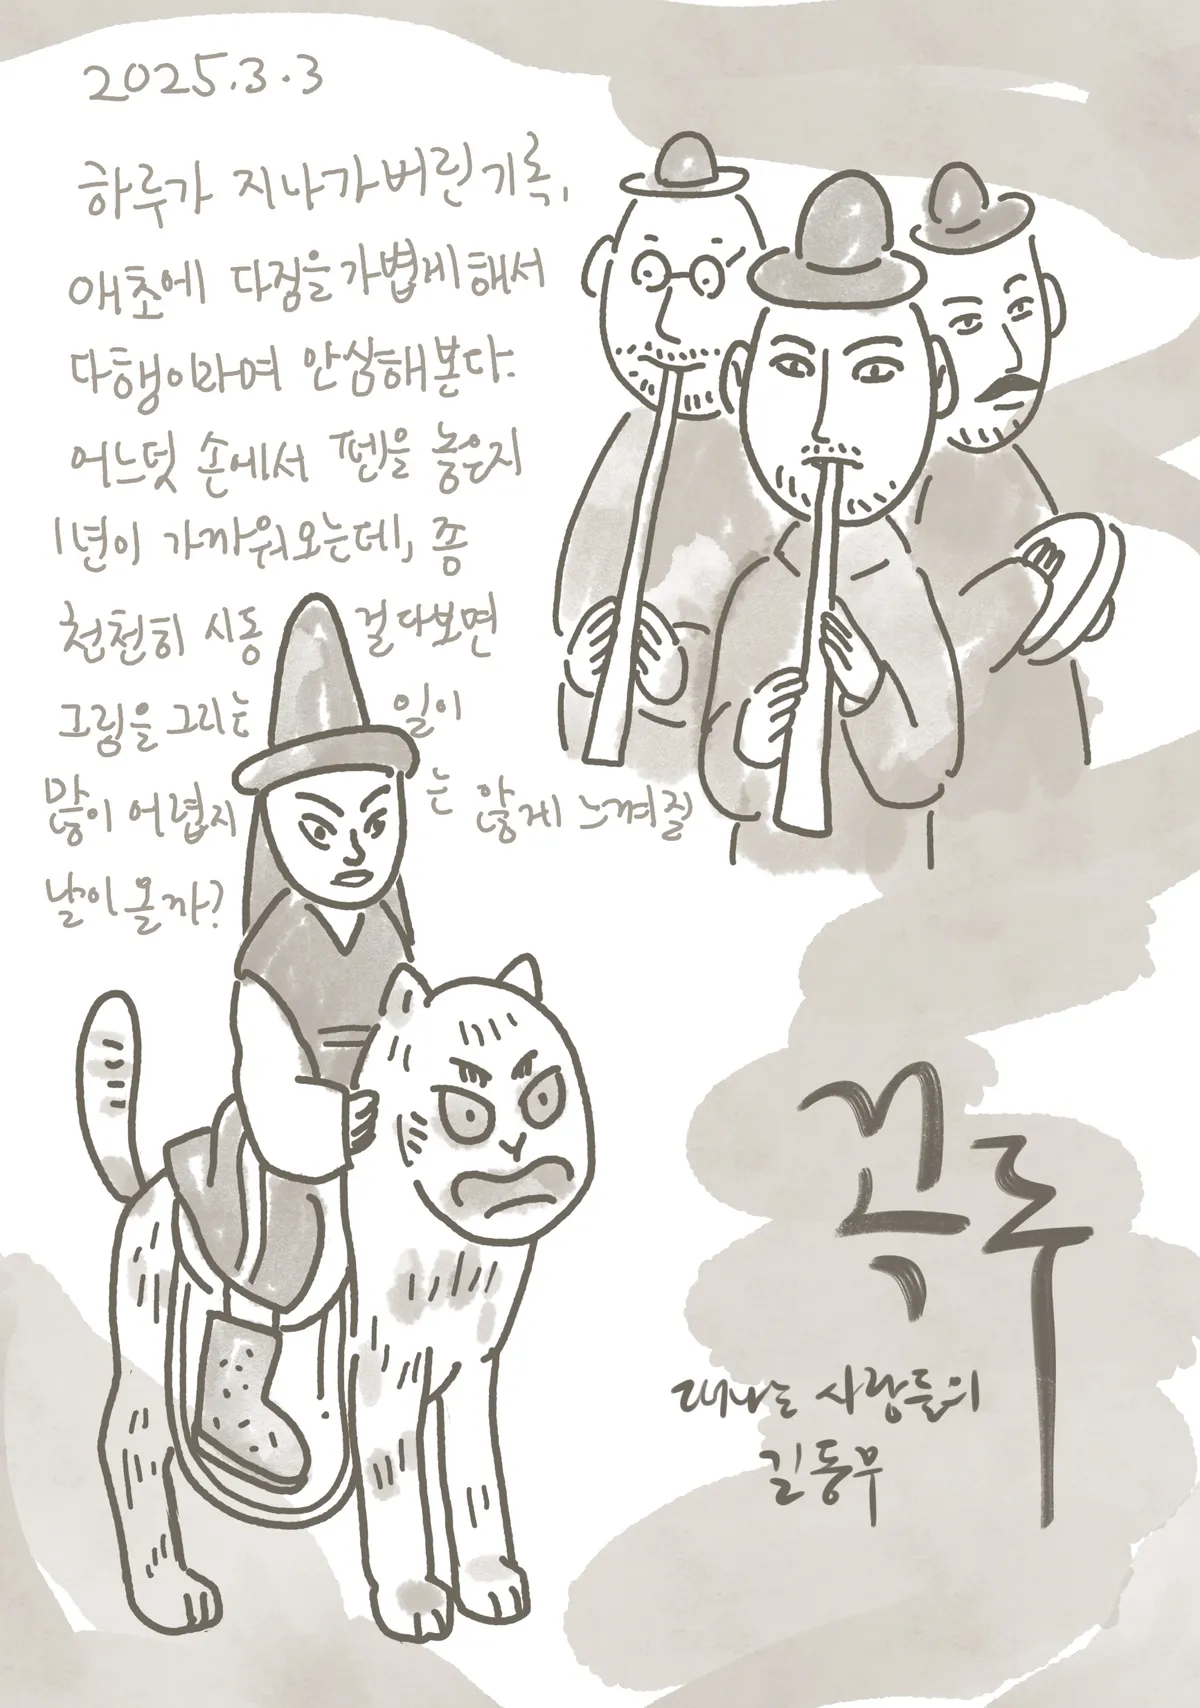 2025.3.3
하루가 지나가버린 기록,
애초에 다짐을 가볍게 해서
다행이라며 안심해 본다.
어느덧 손에서 펜을 놓은지
1년이 가까워 오는데, 좀
천천히 시동 걸다보면
그림을 그리는 일이
많이 어렵지는 않게 느껴질
날이 올까?
꼭두
떠나는 사람들의
길동무